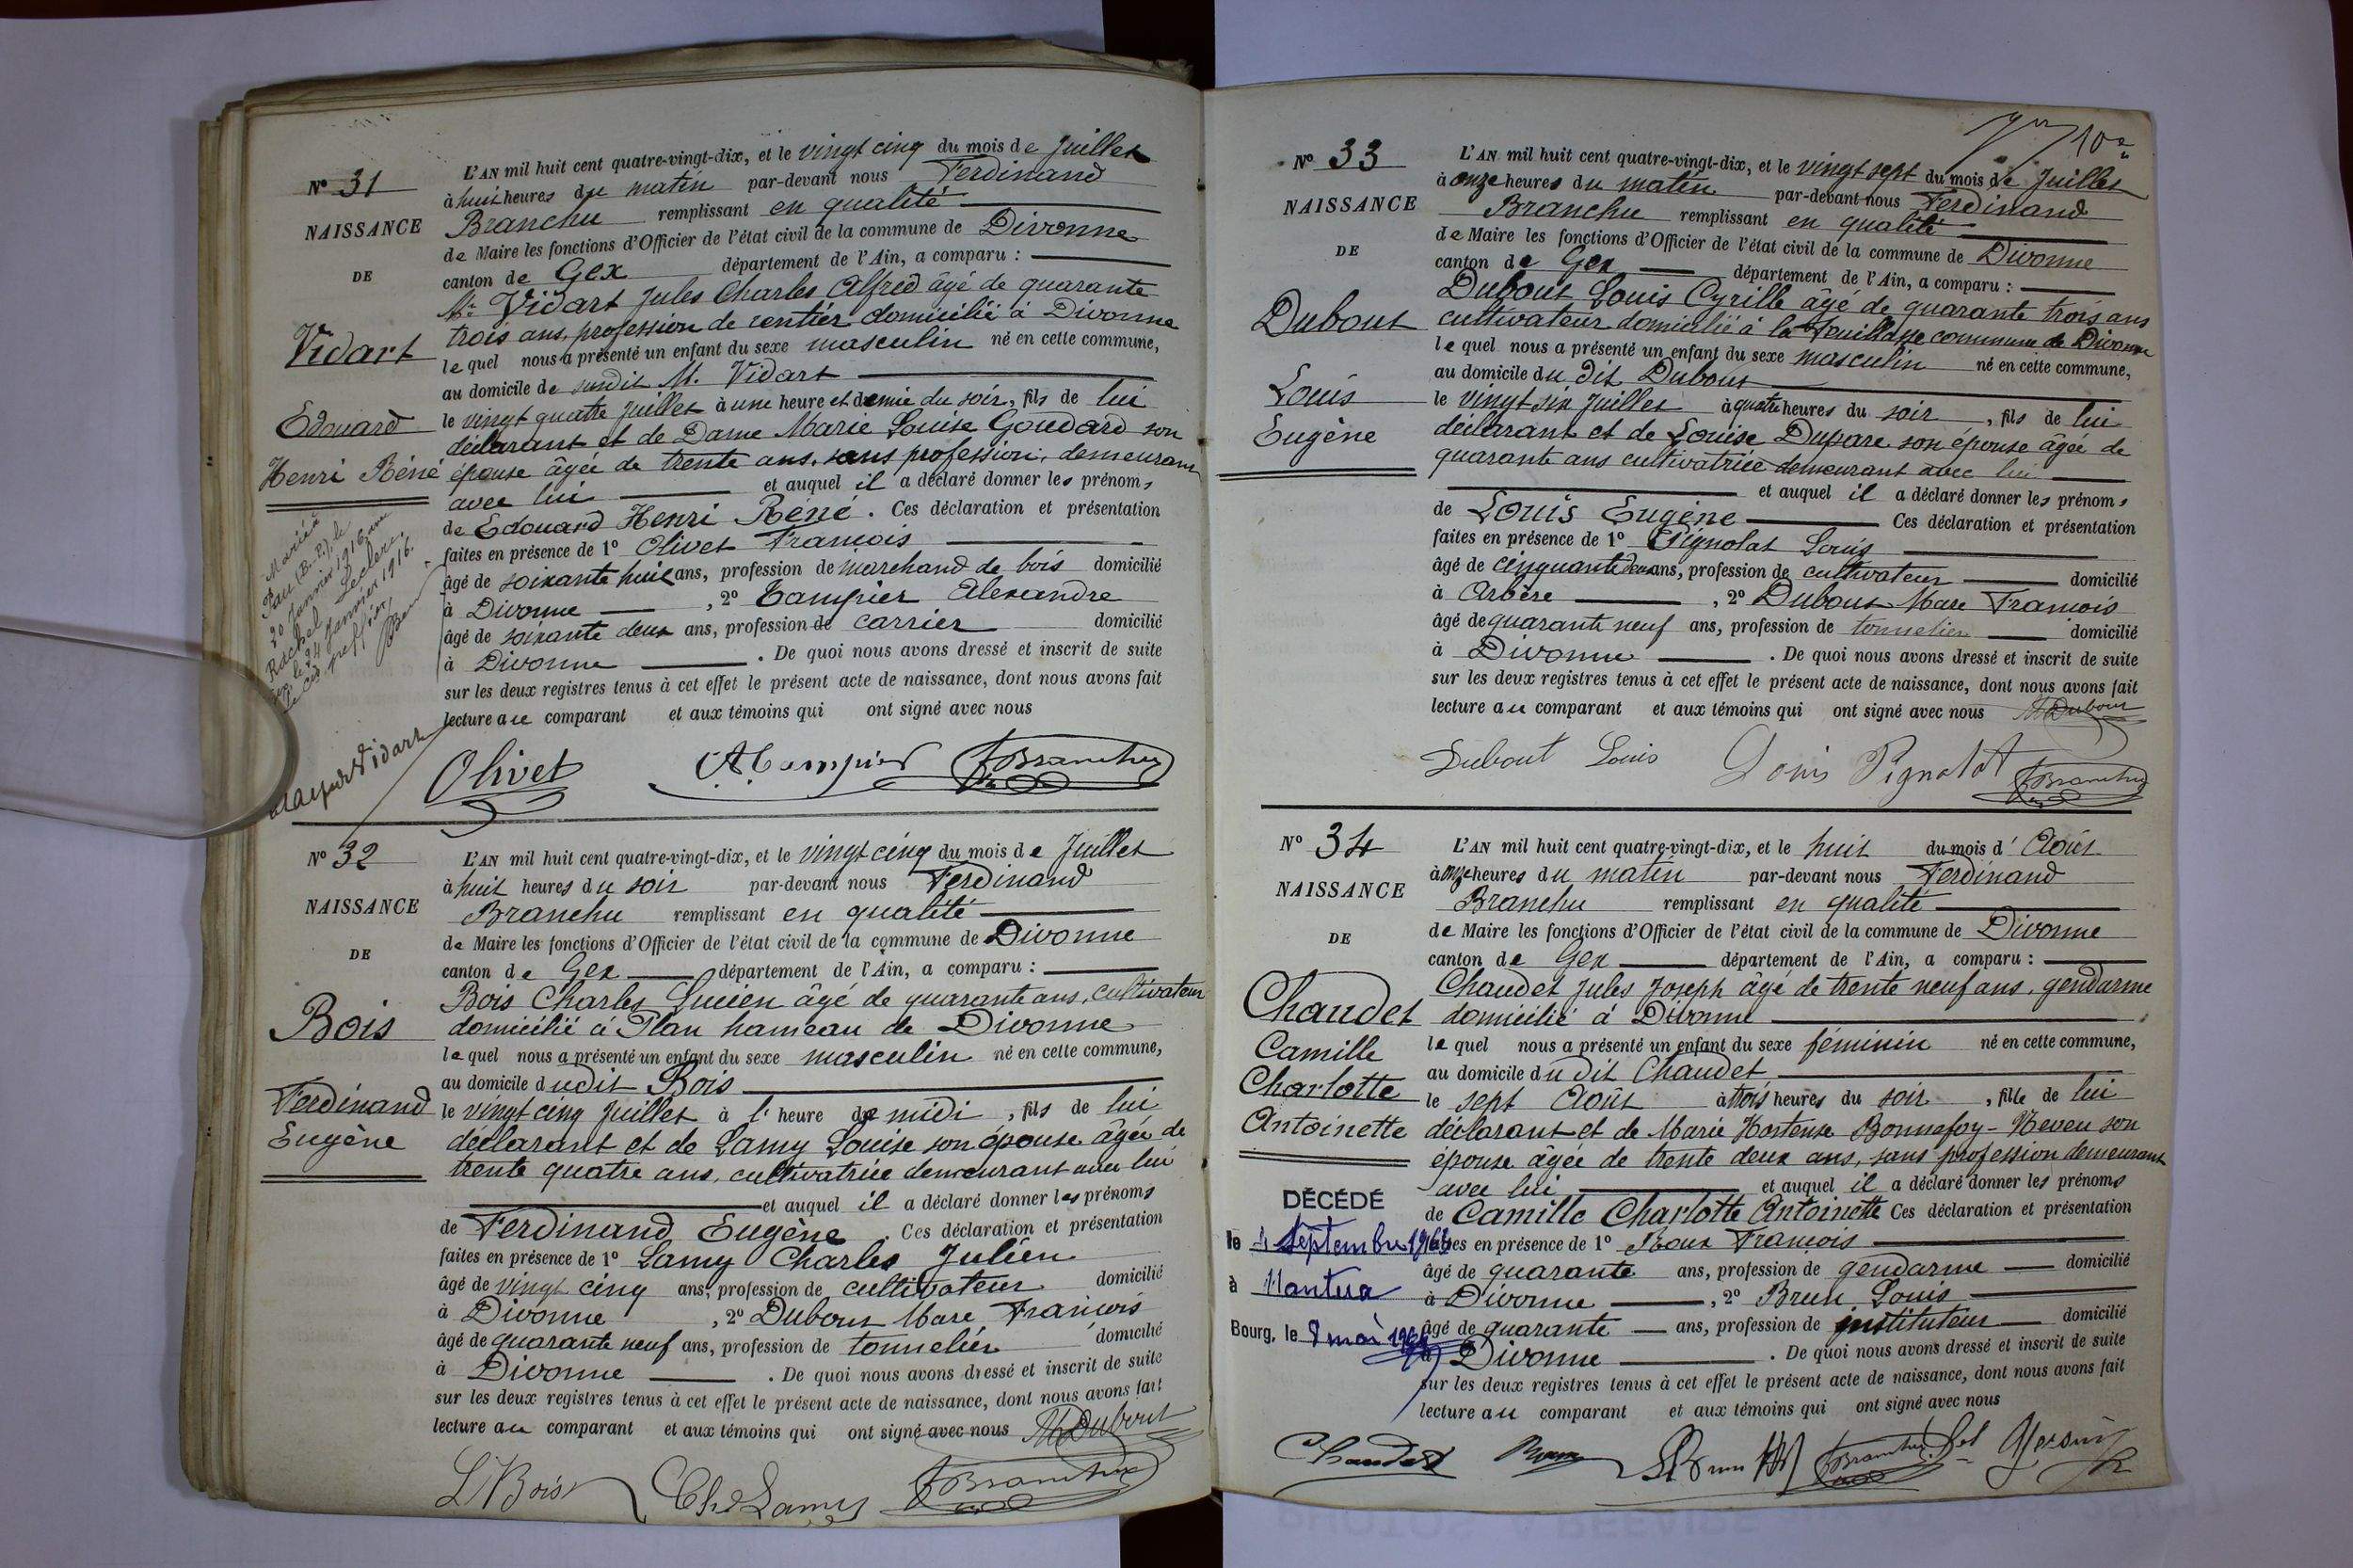 N° 31
NAISSANCE
DE
Vidart
Edouard
Henri Réné
Marié à
Pau (B. P.), le
20 Janvier 1916
Rachel Leclerc.
le 24 Janvier 1916.
Le greffier,
L'AN mil huit cent quatre-vingt-dix, et le vingt cinq du mois de Juillet
à huit heures du matin par-devant nous Ferdinand
Branchu remplissant en qualité
de Maire les fonctions d'Officier de l'état civil de la commune de Divonne
canton de Gex département de l'Ain, a comparu :
Mr Vidart Jules Charles Alfred âgé de quarante
trois ans, profession de rentier domicilié à Divonne
lequel nous a présenté un enfant du sexe masculin né en cette commune,
au domicile de susdit M. Vidart
le vingt quatre Juillet à une heure et demie du soir, fils de lui
déclarant et de Dame Marie Louise Goudard son
épouse âgée de trente ans, sans profession, demeurant
avec lui et auquel il a déclaré donner les prénoms
de Edouard Henri Réné. Ces déclaration et présentation
faites en présence de 1° Olivet François
âgé de soixante huit ans, profession de marchand de bois domicilié
à Divonne , 2° Tampier Alexandre
âgé de soixante deux ans, profession de carrier domicilié
à Divonne . De quoi nous avons dressé et inscrit de suite
sur les deux registres tenus à cet effet le présent acte de naissance, dont nous avons fait
lecture au comparant et aux témoins qui ont signé avec nous
Vidart
Olivet ATampier FBranchu
N° 32
NAISSANCE
DE
Bois
Ferdinand
Eugène
L'AN mil huit cent quatre-vingt-dix, et le vingt cinq du mois de Juillet
à huit heures du soir par-devant nous Ferdinand
Branchu remplissant en qualité
de Maire les fonctions d'Officier de l'état civil de la commune de Divonne
canton de Gex département de l'Ain, a comparu :
Bois Charles Lucien âgé de quarante ans, cultivateur
domicilié à Plan hameau de Divonne
lequel nous a présenté un enfant du sexe masculin né en cette commune,
au domicile dudit Bois
le vingt cinq Juillet à l' heure de midi , fils de lui
déclarant et de Lamy Louise son épouse âgée de
trente quatre ans, cultivatrice demeurant avec lui
et auquel il a déclaré donner les prénoms
de Ferdinand Eugène . Ces déclaration et présentation
faites en présence de 1° Lamy Charles Julien
âgé de vingt cinq ans, profession de cultivateur domicilié
à Divonne , 2° Dubout Marc François
âgé de quarante neuf ans, profession de tonnelier domicilié
à Divonne . De quoi nous avons dressé et inscrit de suite
sur les deux registres tenus à cet effet le présent acte de naissance, dont nous avons fait
lecture au comparant et aux témoins qui ont signé avec nous MDubout
LBois Chs Lamy FBranchu
N° 33
NAISSANCE
DE
Dubout
Louis
Eugène
L'AN mil huit cent quatre-vingt-dix, et le vingt sept du mois de Juillet
à onze heures du matin par-devant nous Ferdinand
Branchu remplissant en qualité
de Maire les fonctions d'Officier de l'état civil de la commune de Divonne
canton de Gex département de l'Ain, a comparu :
Dubout Louis Cyrille âgé de quarante trois ans
cultivateur domicilié à la commune de Divonne
lequel nous a présenté un enfant du sexe masculin né en cette commune,
au domicile du dit Dubout
le vingt six Juillet à quatre heures du soir , fils de lui
déclarant et de Louise Dupare son épouse âgée de
quarante ans cultivatrice demeurant avec lui
et auquel il a déclaré donner les prénoms
de Louis Eugène Ces déclaration et présentation
faites en présence de 1° Pignolat Louis
âgé de cinquante deux ans, profession de cultivateur domicilié
à Arbère , 2° Dubout Marc François
âgé de quarante neuf ans, profession de tonnelier domicilié
à Divonne . De quoi nous avons dressé et inscrit de suite
sur les deux registres tenus à cet effet le présent acte de naissance, dont nous avons fait
lecture au comparant et aux témoins qui ont signé avec nous MDubout
Dubout Louis Louis Pignolat FBranchu
N° 34
NAISSANCE
DE
Chaudet
Camille
Charlotte
Antoinette
DÉCÉDÉ
le 4 Septembre
à Nantua
Bourg, le 8 mai
L'AN mil huit cent quatre-vingt-dix, et le huit du mois d'Août
à onze heures du matin par-devant nous Ferdinand
Branchu remplissant en qualité
de Maire les fonctions d'Officier de l'état civil de la commune de Divonne
canton de Gex département de l'Ain, a comparu :
Chaudet Jules Joseph âgé de trente neuf ans, gendarme
domicilié à Divonne
lequel nous a présenté un enfant du sexe féminin né en cette commune,
au domicile du dit Chaudet
le sept Août à trois heures du soir , fille de lui
déclarant et de Marie Hortense Bonnefoy-Neveu son
épouse âgée de trente deux ans, sans profession demeurant
avec lui et auquel il a déclaré donner les prénoms
de Camille Charlotte Antoinette Ces déclaration et présentation
faites en présence de 1° Roux François
âgé de quarante ans, profession de gendarme domicilié
à Divonne , 2° Brun Louis
âgé de quarante ans, profession de instituteur domicilié
à Divonne . De quoi nous avons dressé et inscrit de suite
sur les deux registres tenus à cet effet le présent acte de naissance, dont nous avons fait
lecture au comparant et aux témoins qui ont signé avec nous
Chaudet Roux LBrun FBranchu